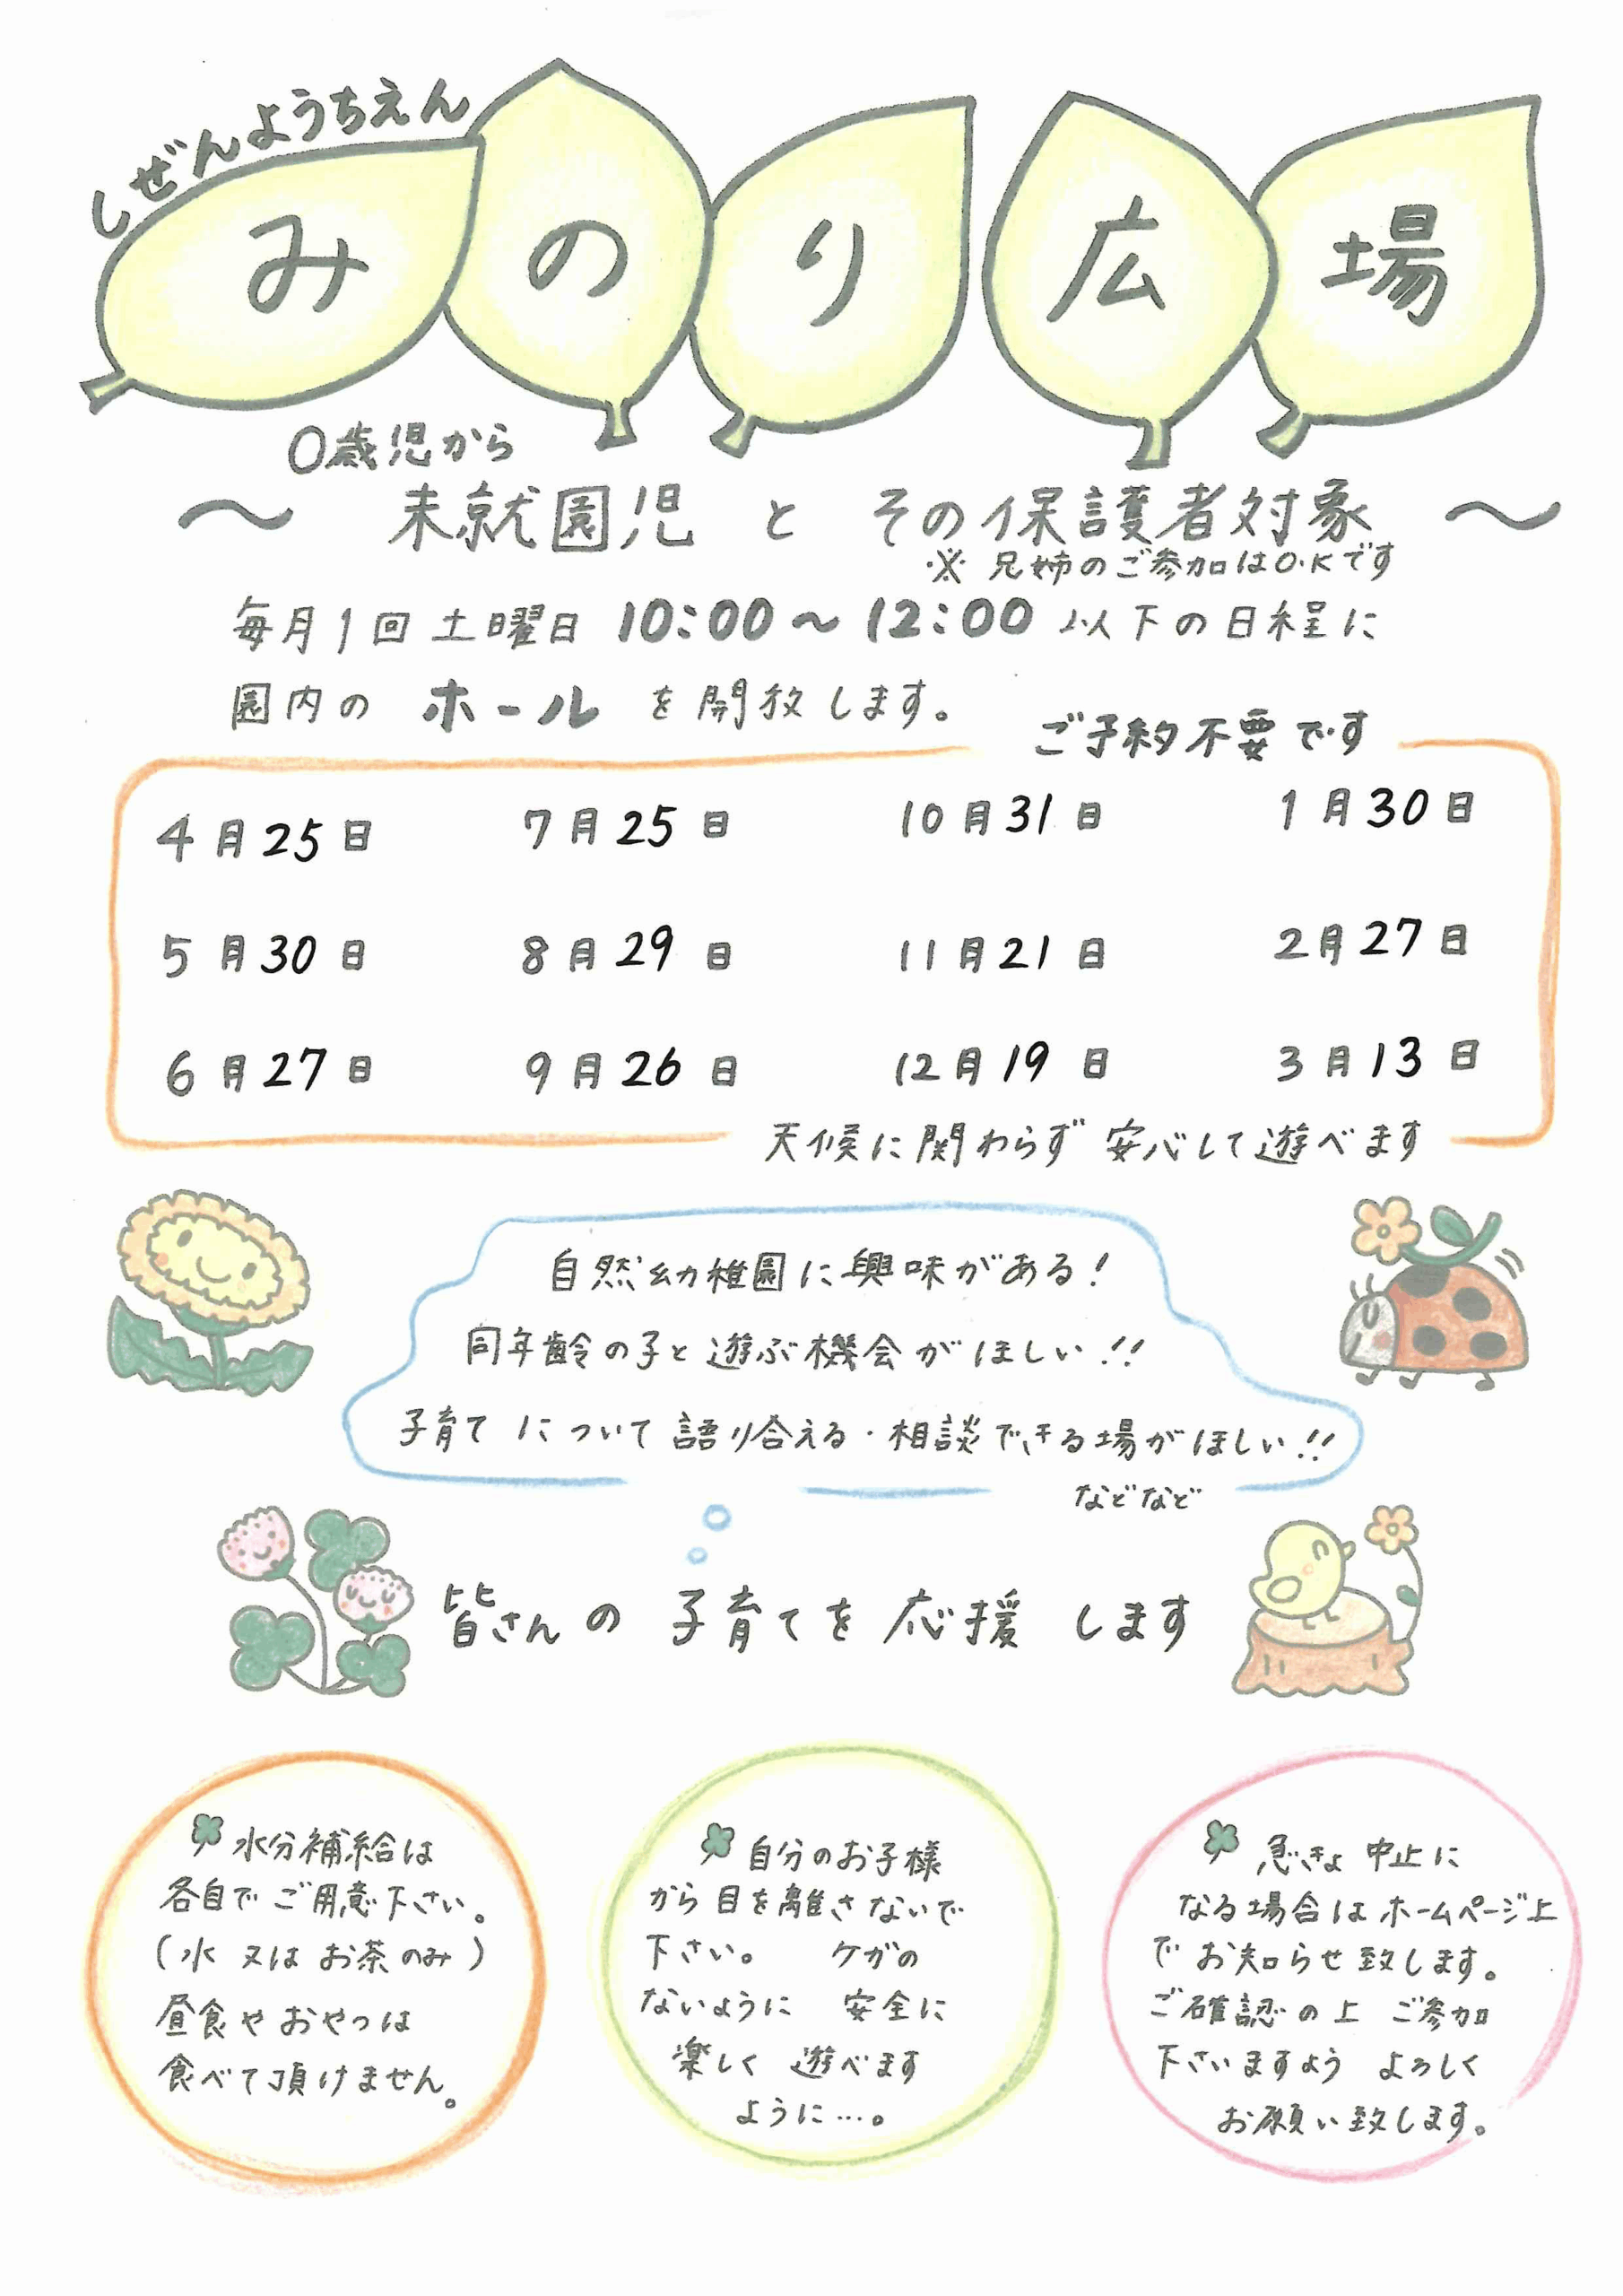 しぜんようちえん
みのり広場
0歳児から
～ 未就園児 と その保護者対象 ～
※ 兄姉のご参加はO.Kです
毎月1回 土曜日 10:00～12:00 以下の日程に
園内の ホール を開放します。
ご予約不要です
4月25日 7月25日 10月31日 1月30日
5月30日 8月29日 11月21日 2月27日
6月27日 9月26日 12月19日 3月13日
天候に関わらず 安心して遊べます
自然幼稚園に興味がある!
同年齢の子と遊ぶ機会がほしい!!
子育てについて語り合える・相談できる場がほしい!!
などなど
皆さんの 子育てを 応援 します
水分補給は
各自でご用意下さい。
(水 又は お茶のみ)
昼食やおやつは
食べて頂けません。
自分のお子様
から目を離さないで
下さい。 ケガの
ないように 安全に
楽しく 遊べます
ように…。
急きょ 中止に
なる場合はホームページ上
でお知らせ致します。
ご確認の上 ご参加
下さいますよう よろしく
お願い致します。